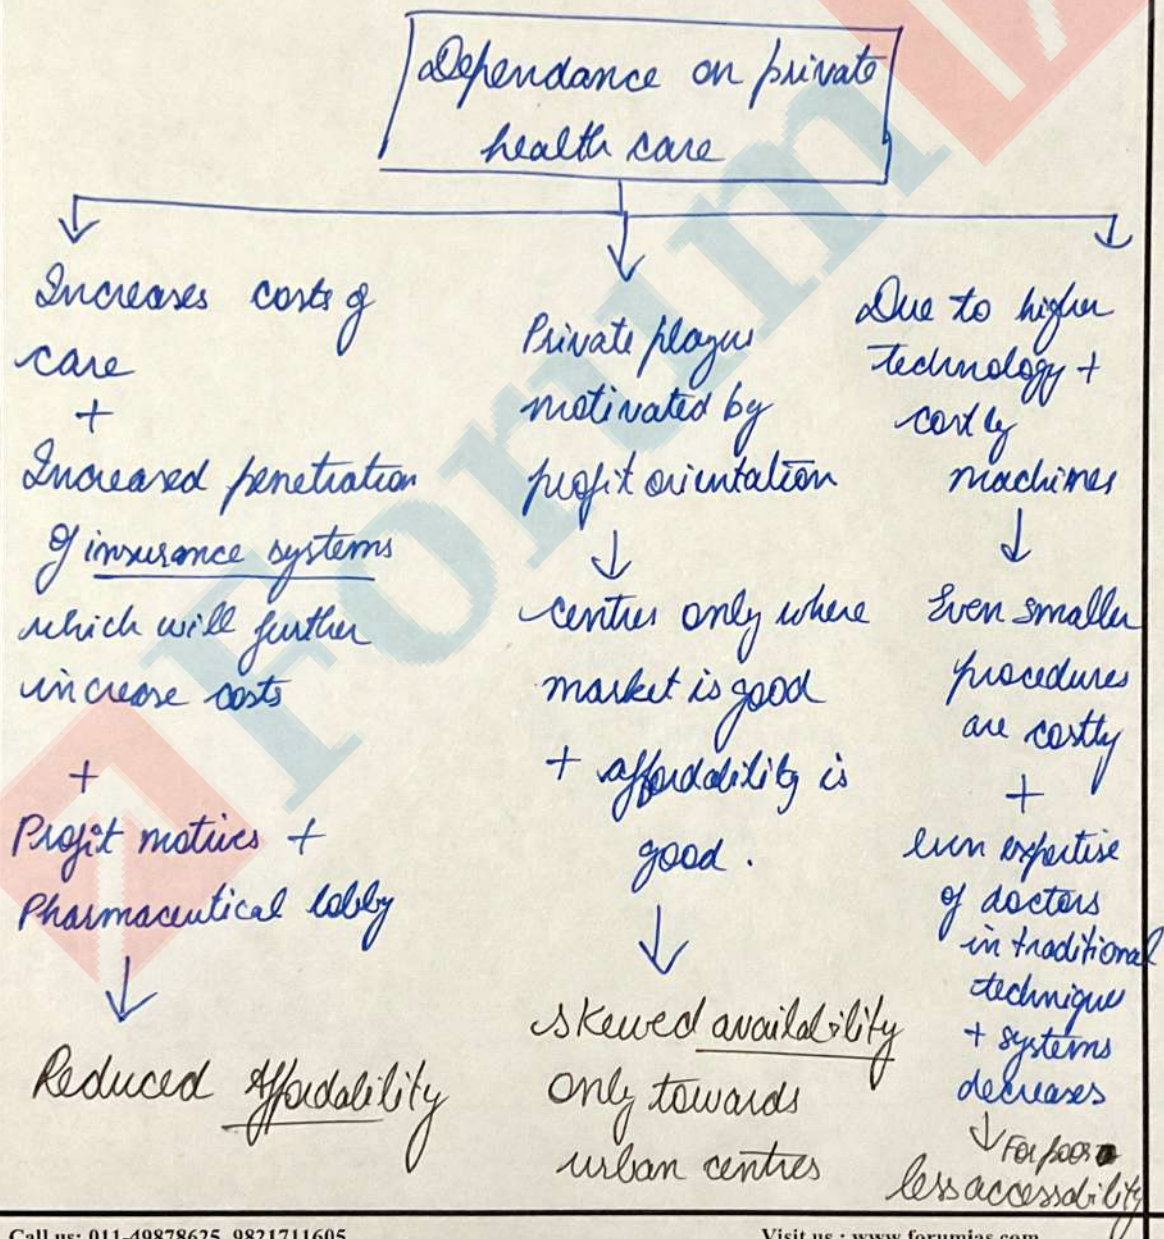 Dependance on private
health care
Increases costs of
care
+
Increased penetration
of insurance systems
which will further
increase costs
+
Profit motives +
Pharmaceutical lobby
↓
Reduced Affordability
Private players
motivated by
profit orientation
↓
centres only where
market is good
+ affordability is
good.
↓
skewed availability
only towards
urban centres
Due to higher
technology +
costly
machines
↓
Even smaller
procedures
are costly
+
even expertise
of doctors
in traditional
technique
+ systems
decreases
↓ For poor
less accessability
Forum
Call us: 011-49878625, 9821711605
Visit us : www.forumias.com